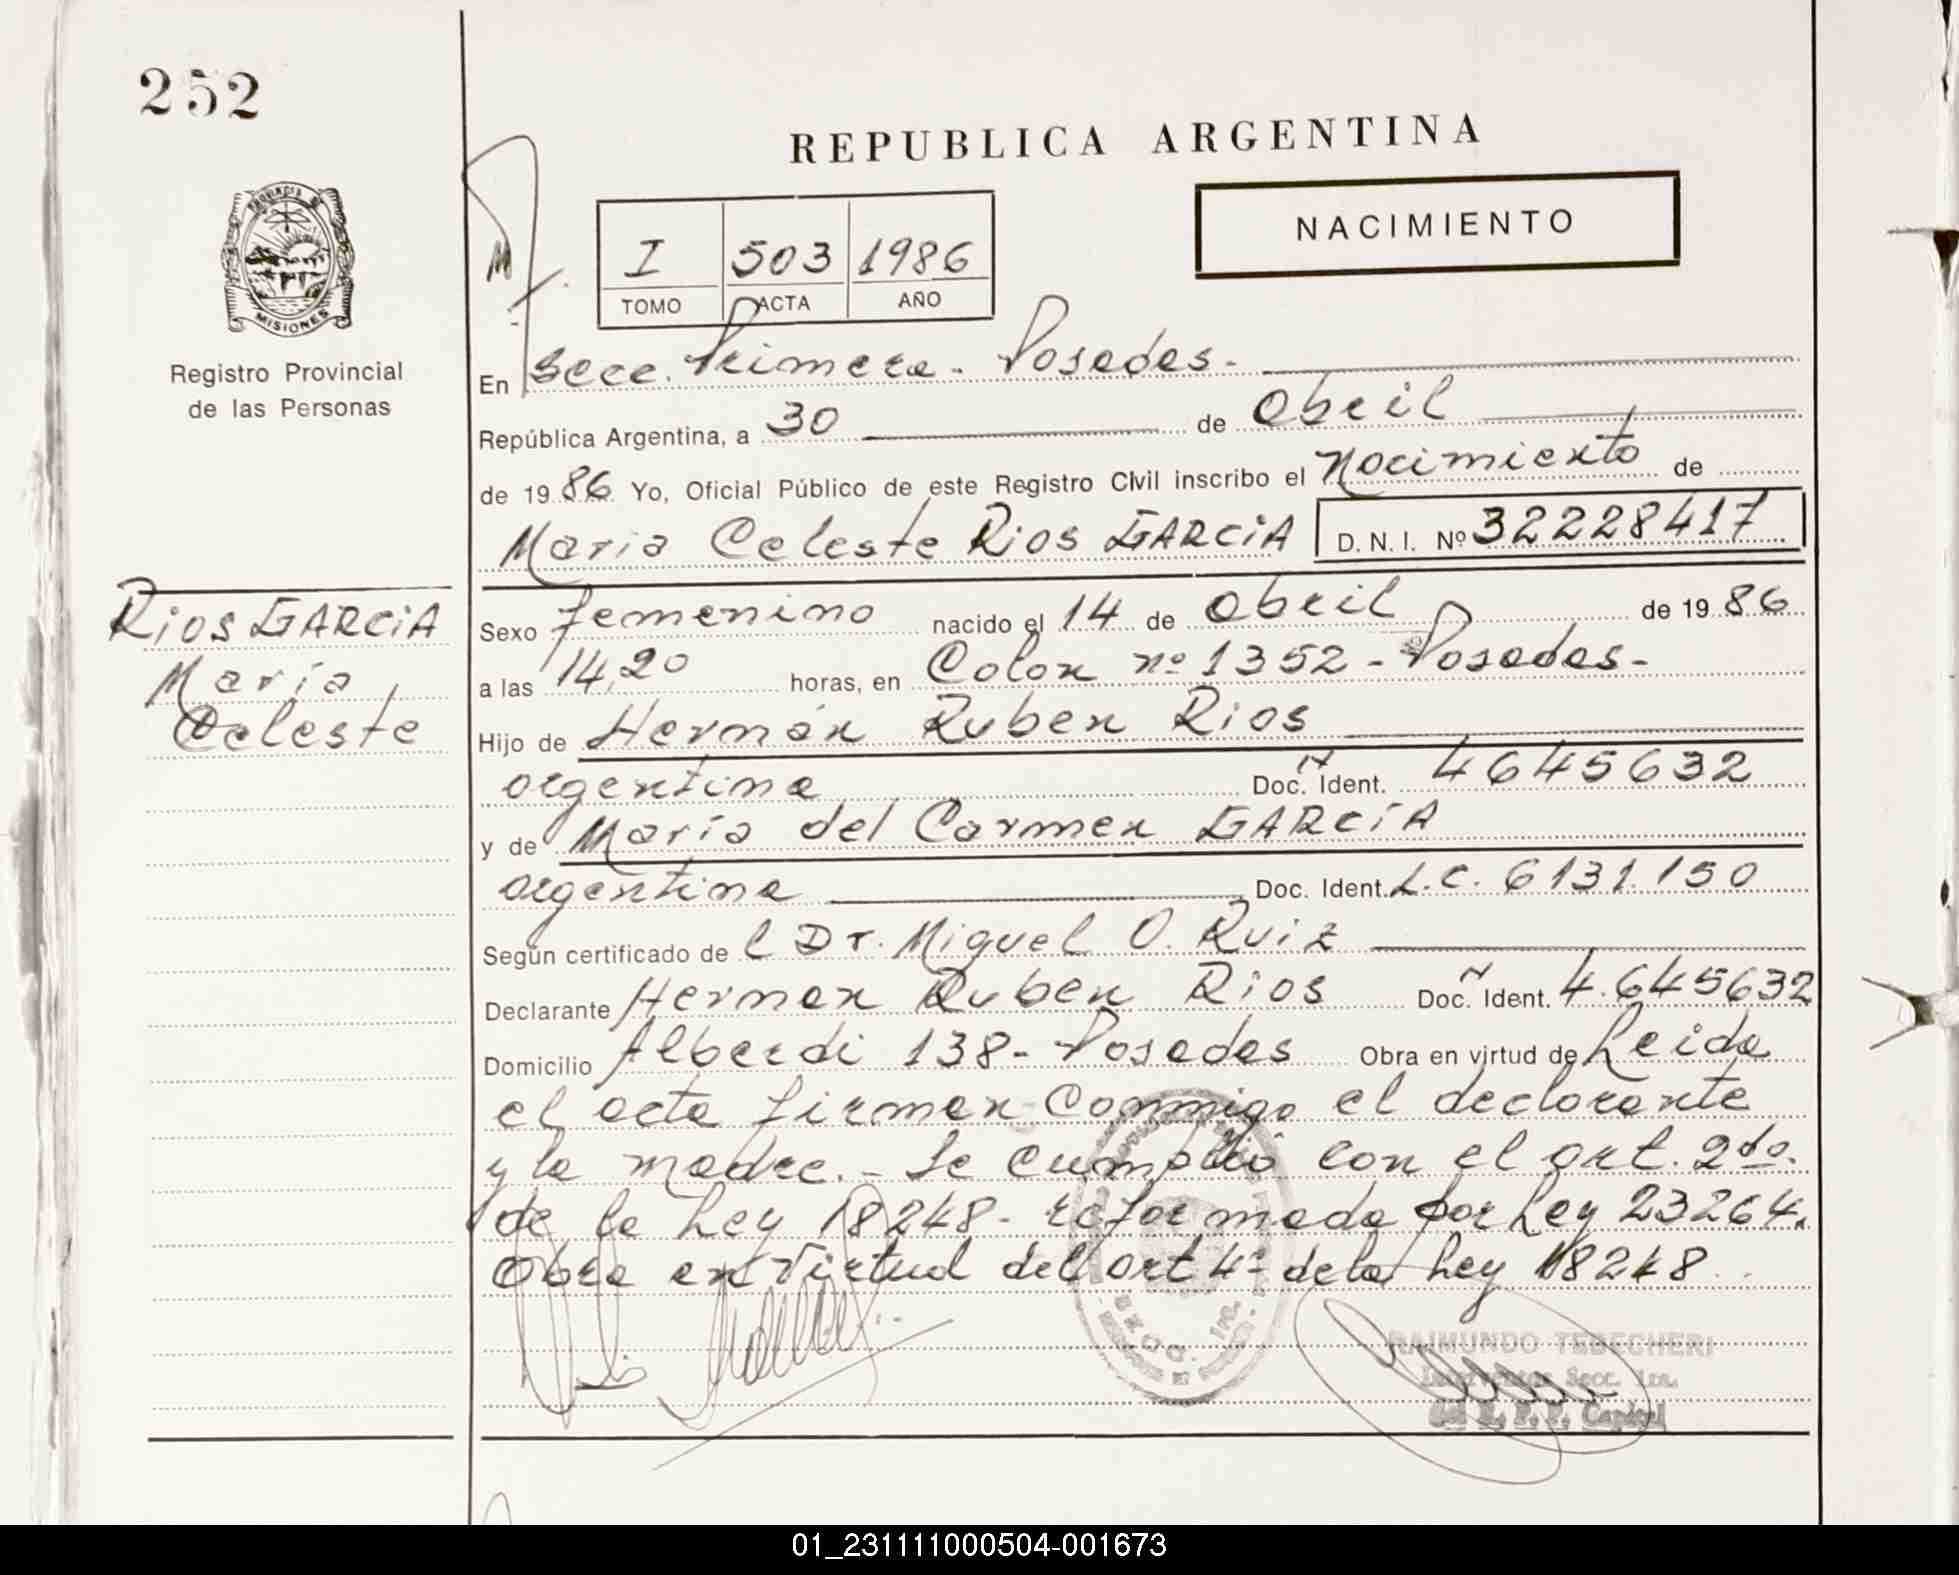 252
REPUBLICA ARGENTINA
NACIMIENTO
I 503 1986
TOMO ACTA AÑO
MISIONES
Registro Provincial
de las Personas
En Secc. Primera - Posadas -
República Argentina, a 30 de abril
de 1986 Yo, Oficial Público de este Registro Civil inscribo el Nacimiento de
Maria Celeste Rios GARCIA D.N.I. Nº 32228417
Rios GARCIA
María
Celeste
Sexo femenino nacido el 14 de abril de 1986
a las 14,20 horas, en Colon nº 1352 - Posadas -
Hijo de Hernán Ruben Rios
argentina Doc. Ident. 4645632
y de María del Carmen GARCIA
argentina Doc. Ident. L.C. 6131.150
Según certificado de l Dr. Miguel O. Ruiz
Declarante Hernan Ruben Rios Doc. Ident. 4.645632
Domicilio Alberdi 138 - Posadas Obra en virtud de Leida
el acta firman conmigo el declarante
y la madre. - Se cumplió con el art. 2do.
de la Ley 18248 - reformada por Ley 23264.
Obra en virtud del art 4º de la Ley 18248
RAIMUNDO TEBECHERI
Secc. 1ra.
del R. P. P. Capital
01_231111000504-001673